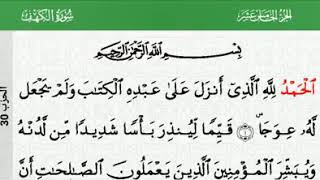 الجزء الخامس عشر
سُورَةُ الكَهْفِ
بِسْمِ ٱللَّهِ ٱلرَّحْمَٰنِ ٱلرَّحِيمِ
ٱلْحَمْدُ لِلَّهِ ٱلَّذِىٓ أَنزَلَ عَلَىٰ عَبْدِهِ ٱلْكِتَٰبَ وَلَمْ يَجْعَل
لَّهُۥ عِوَجَاۜ ١ قَيِّمًا لِّيُنذِرَ بَأْسًا شَدِيدًا مِّن لَّدُنْهُ
وَيُبَشِّرَ ٱلْمُؤْمِنِينَ ٱلَّذِينَ يَعْمَلُونَ ٱلصَّٰلِحَٰتِ أَنَّ
الحزب 30